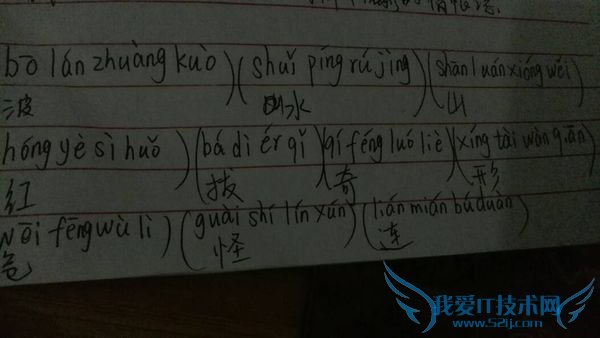 bō lán zhuàng kuò )( shuǐ píng rú jìng )( shān luán xióng wěi )
波 水 山
hóng yè sì huǒ )( bá dì ér qǐ )( qí fēng luó liè )( xíng tài wàn qiān )
红 拔 奇 形
wēi fēng wù lì )( guài shí lín xún )( lián mián bú duàn )
危 怪 连
我爱IT技术网
www.52ij.com